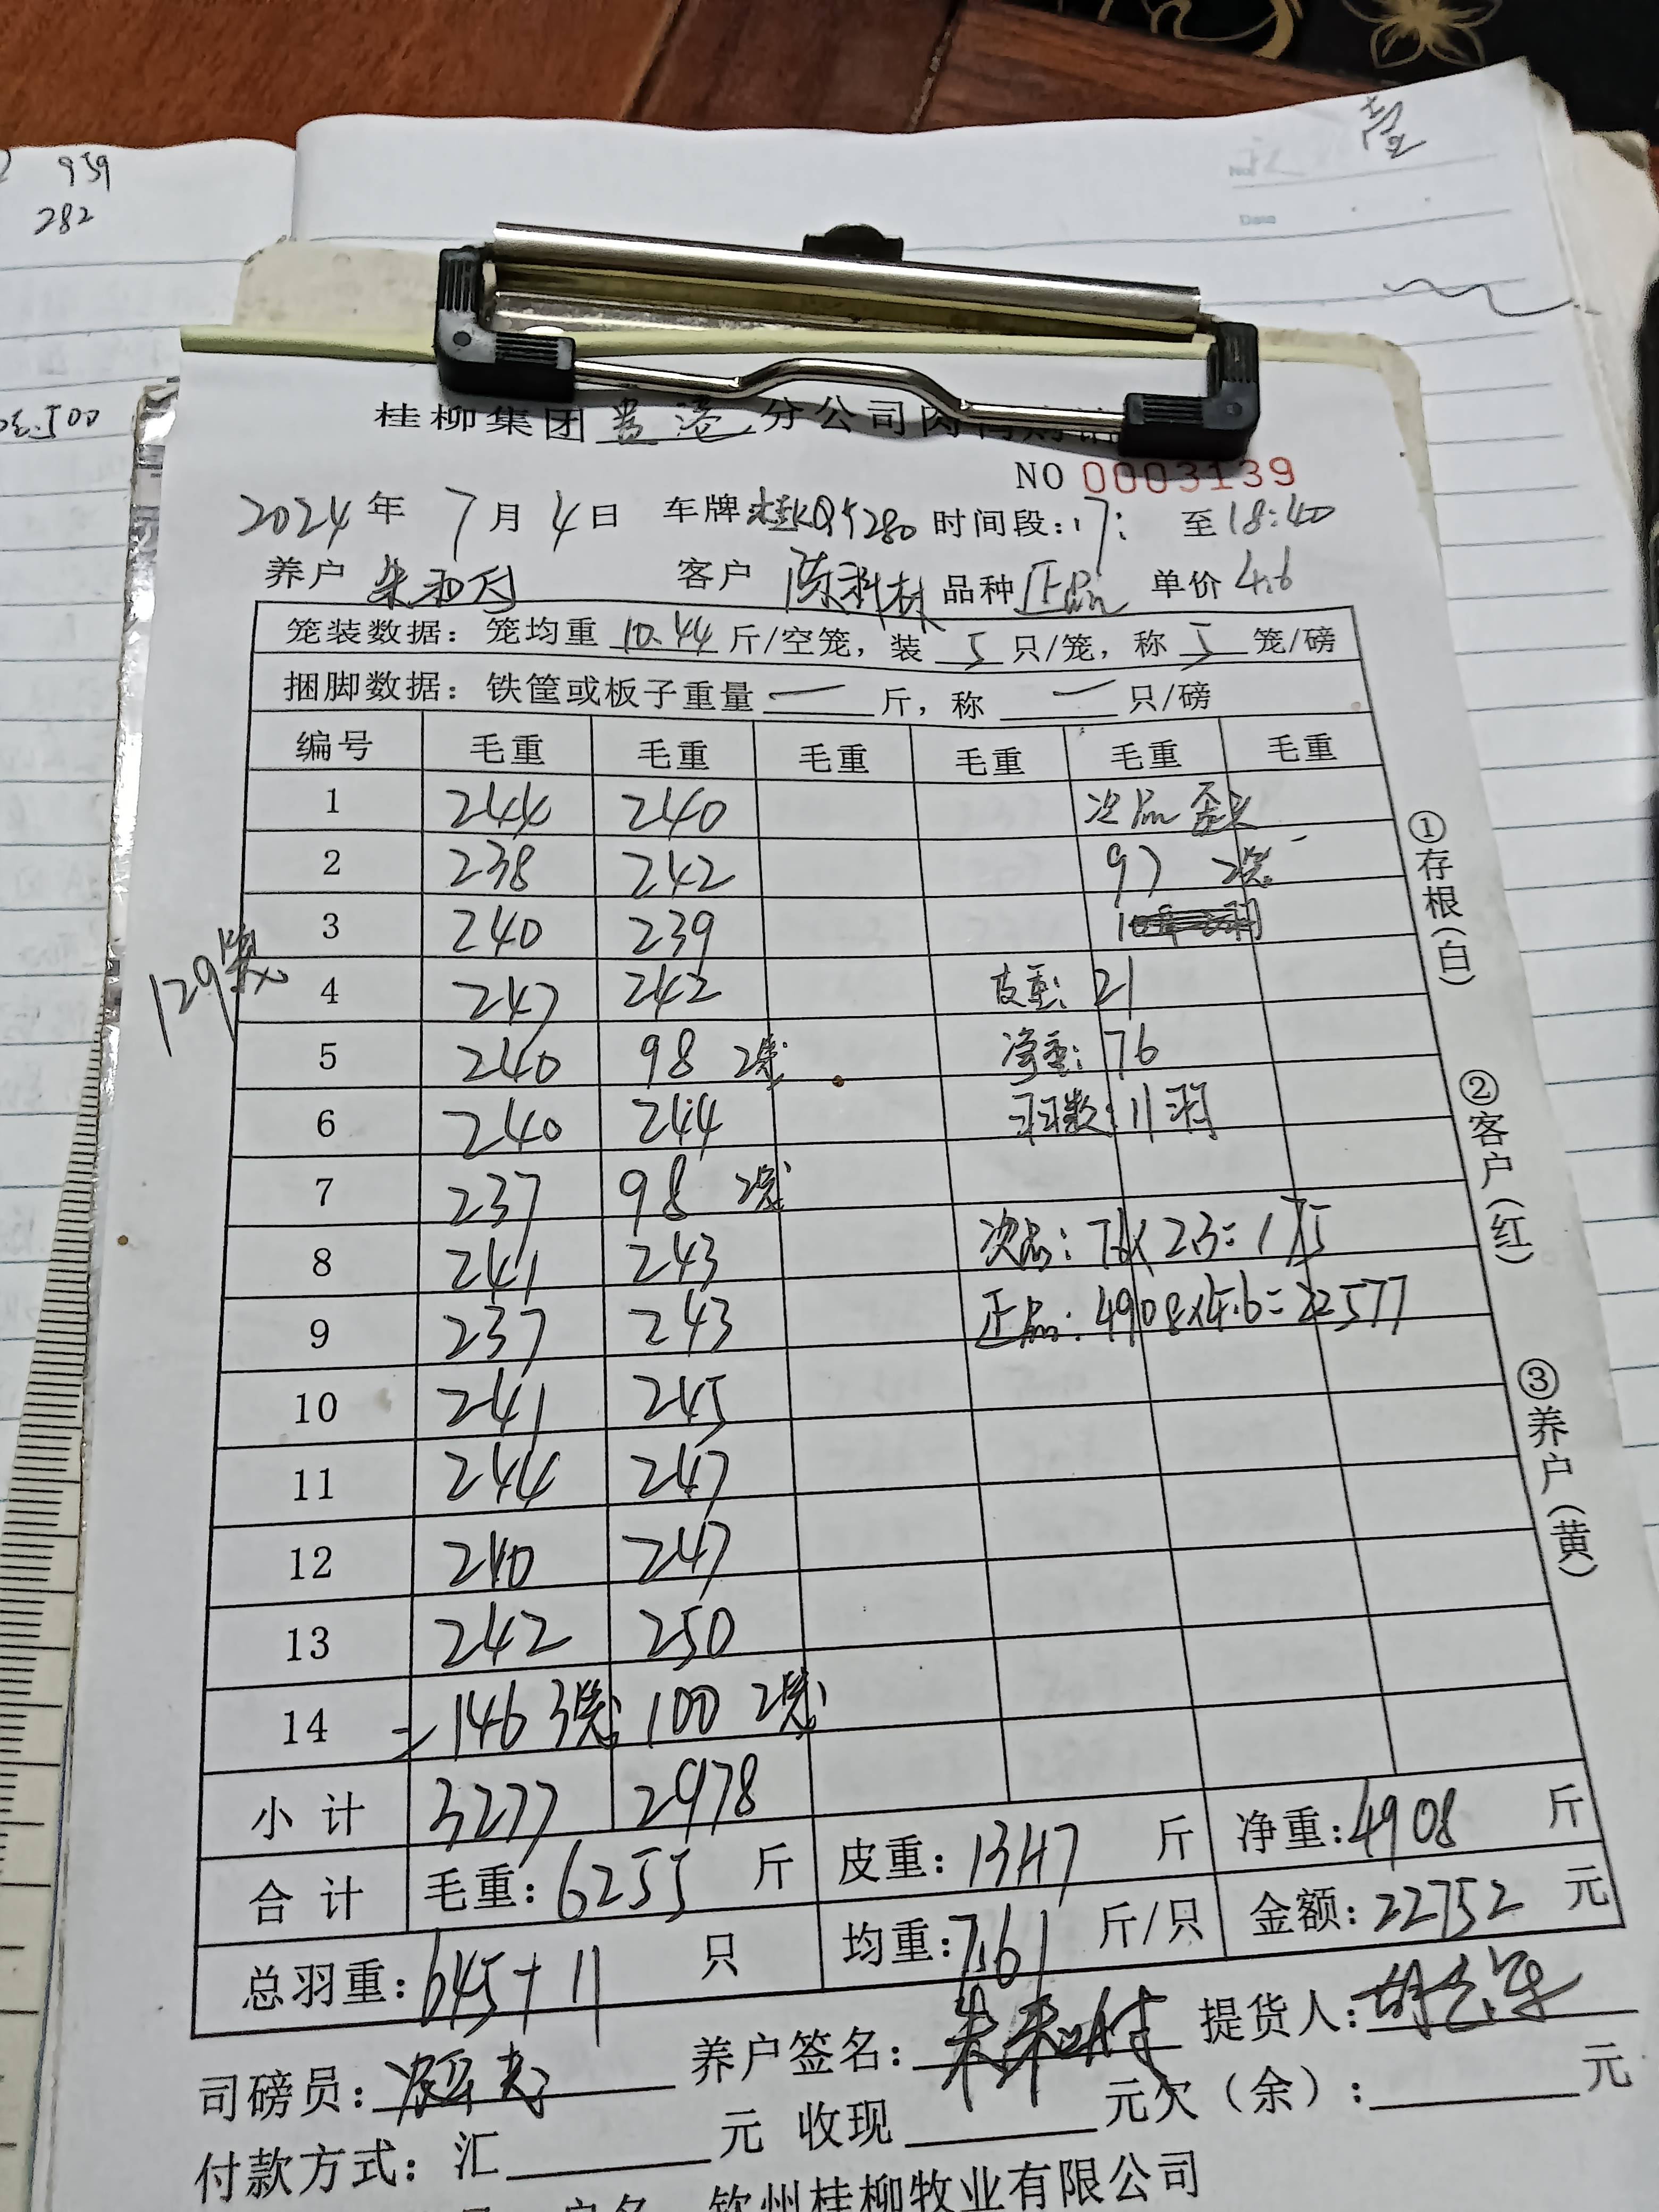 959
282
500
壹
Date
桂柳集团 贵港 分公司肉鸭购销
NO 0003139
2024年 7月 4日 车牌:桂KQY280 时间段:17: 至18:40
养户 朱和付 客户 陈科林 品种 正品 单价 4.6
笼装数据：笼均重 10.44 斤/空笼，装 5 只/笼，称 5 笼/磅
捆脚数据：铁筐或板子重量 — 斤，称 — 只/磅
编号 毛重 毛重 毛重 毛重 毛重 毛重
1 244 240 次品 歪头
2 238 242 97 2笼
3 240 239
4 247 242 皮重：21
5 240 98 2笼 净重：76
6 240 244 羽数：11羽
7 237 98 2笼
8 241 243 次品：76×2.3=175
9 237 243 正品：4908×4.6=22577
10 241 245
11 244 247
12 240 247
13 242 250
14 146 3笼 100 2笼
129笼
小计 3277 2978
合计 毛重：6255 斤 皮重：1347 斤 净重：4908 斤
总羽重：645+11 只 均重：7.61 斤/只 金额：22752 元
司磅员： 养户签名：朱和付 提货人：
付款方式：汇 元 收现 元欠（余）： 元
户名 钦州桂柳牧业有限公司
①存根(白)
②客户(红)
③养户(黄)